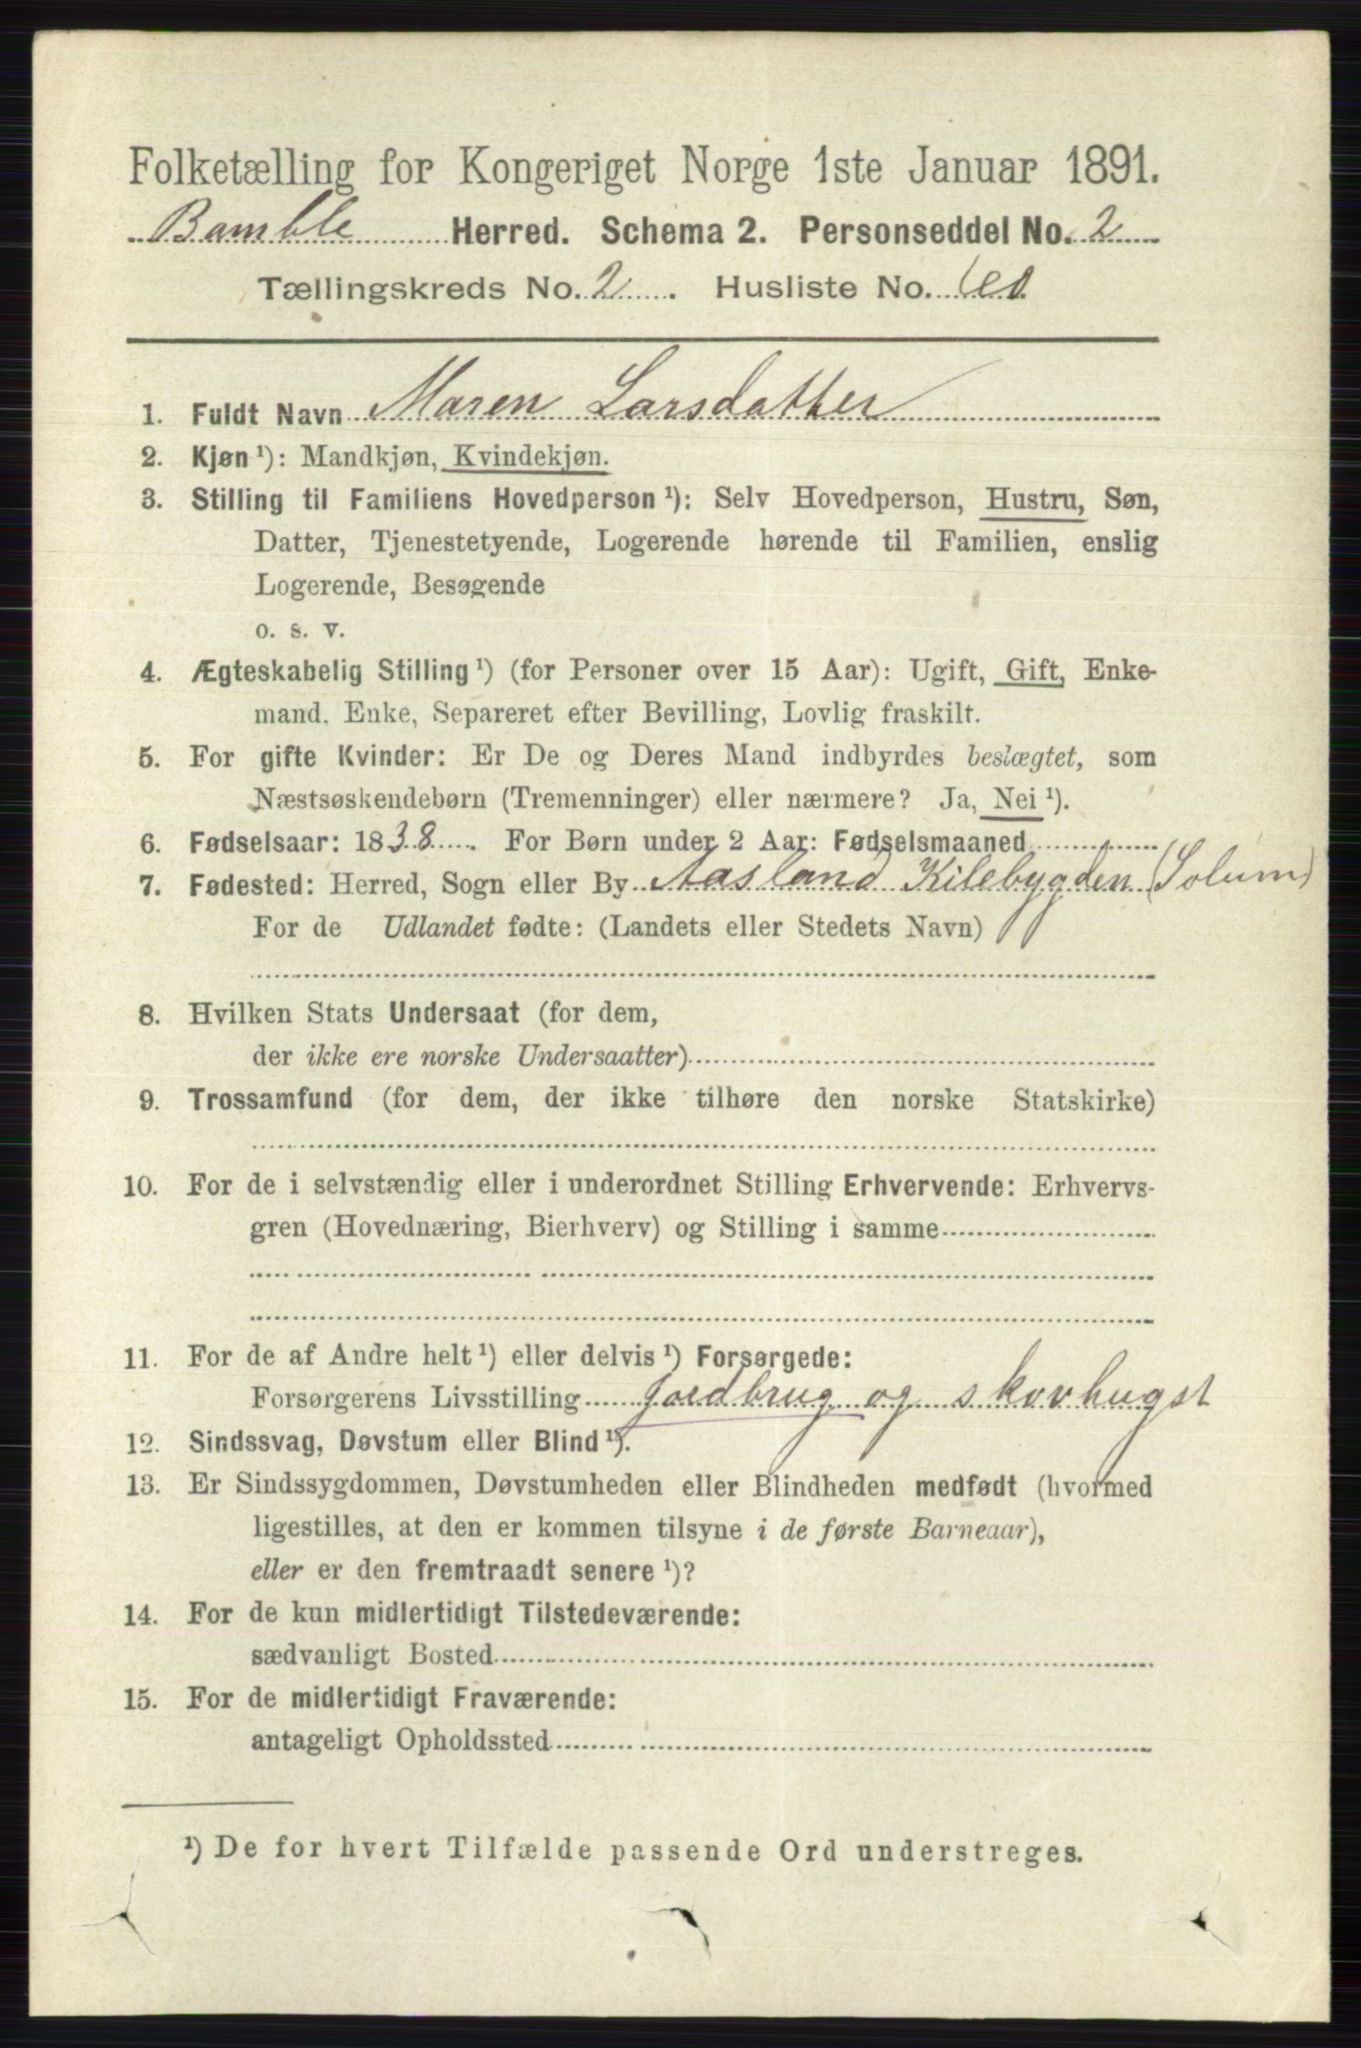 Folketælling for Kongeriget Norge 1ste Januar 1891.
Bamble Herred. Schema 2. Personseddel No. 2
Tællingskreds No. 2. Husliste No.
1. Fuldt Navn Maren Larsdatter
2. Kjøn ¹): Mandkjøn, Kvindekjøn.
3. Stilling til Familiens Hovedperson ¹): Selv Hovedperson, Hustru, Søn,
Datter, Tjenestetyende, Logerende hørende til Familien, enslig
Logerende, Besøgende
o. s. v.
4. Ægteskabelig Stilling ¹) (for Personer over 15 Aar): Ugift, Gift, Enke-
mand, Enke, Separeret efter Bevilling, Lovlig fraskilt.
5. For gifte Kvinder: Er De og Deres Mand indbyrdes beslægtet, som
Næstsøskendebørn (Tremenninger) eller nærmere? Ja, Nei ¹).
6. Fødselsaar: 1838. For Børn under 2 Aar: Fødselsmaaned
7. Fødested: Herred, Sogn eller By Aasland Kilebygden (Solum)
For de Udlandet fødte: (Landets eller Stedets Navn)
8. Hvilken Stats Undersaat (for dem,
der ikke ere norske Undersaatter)
9. Trossamfund (for dem, der ikke tilhøre den norske Statskirke)
10. For de i selvstændig eller i underordnet Stilling Erhvervende: Erhvervs-
gren (Hovednæring, Bierhverv) og Stilling i samme
11. For de af Andre helt ¹) eller delvis ¹) Forsørgede:
Forsørgerens Livsstilling Jordbrug og skovhugst
12. Sindssvag, Døvstum eller Blind ¹).
13. Er Sindssygdommen, Døvstumheden eller Blindheden medfødt (hvormed
ligestilles, at den er kommen tilsyne i de første Barneaar),
eller er den fremtraadt senere ¹)?
14. For de kun midlertidigt Tilstedeværende:
sædvanligt Bosted
15. For de midlertidigt Fraværende:
antageligt Opholdssted
¹) De for hvert Tilfælde passende Ord understreges.